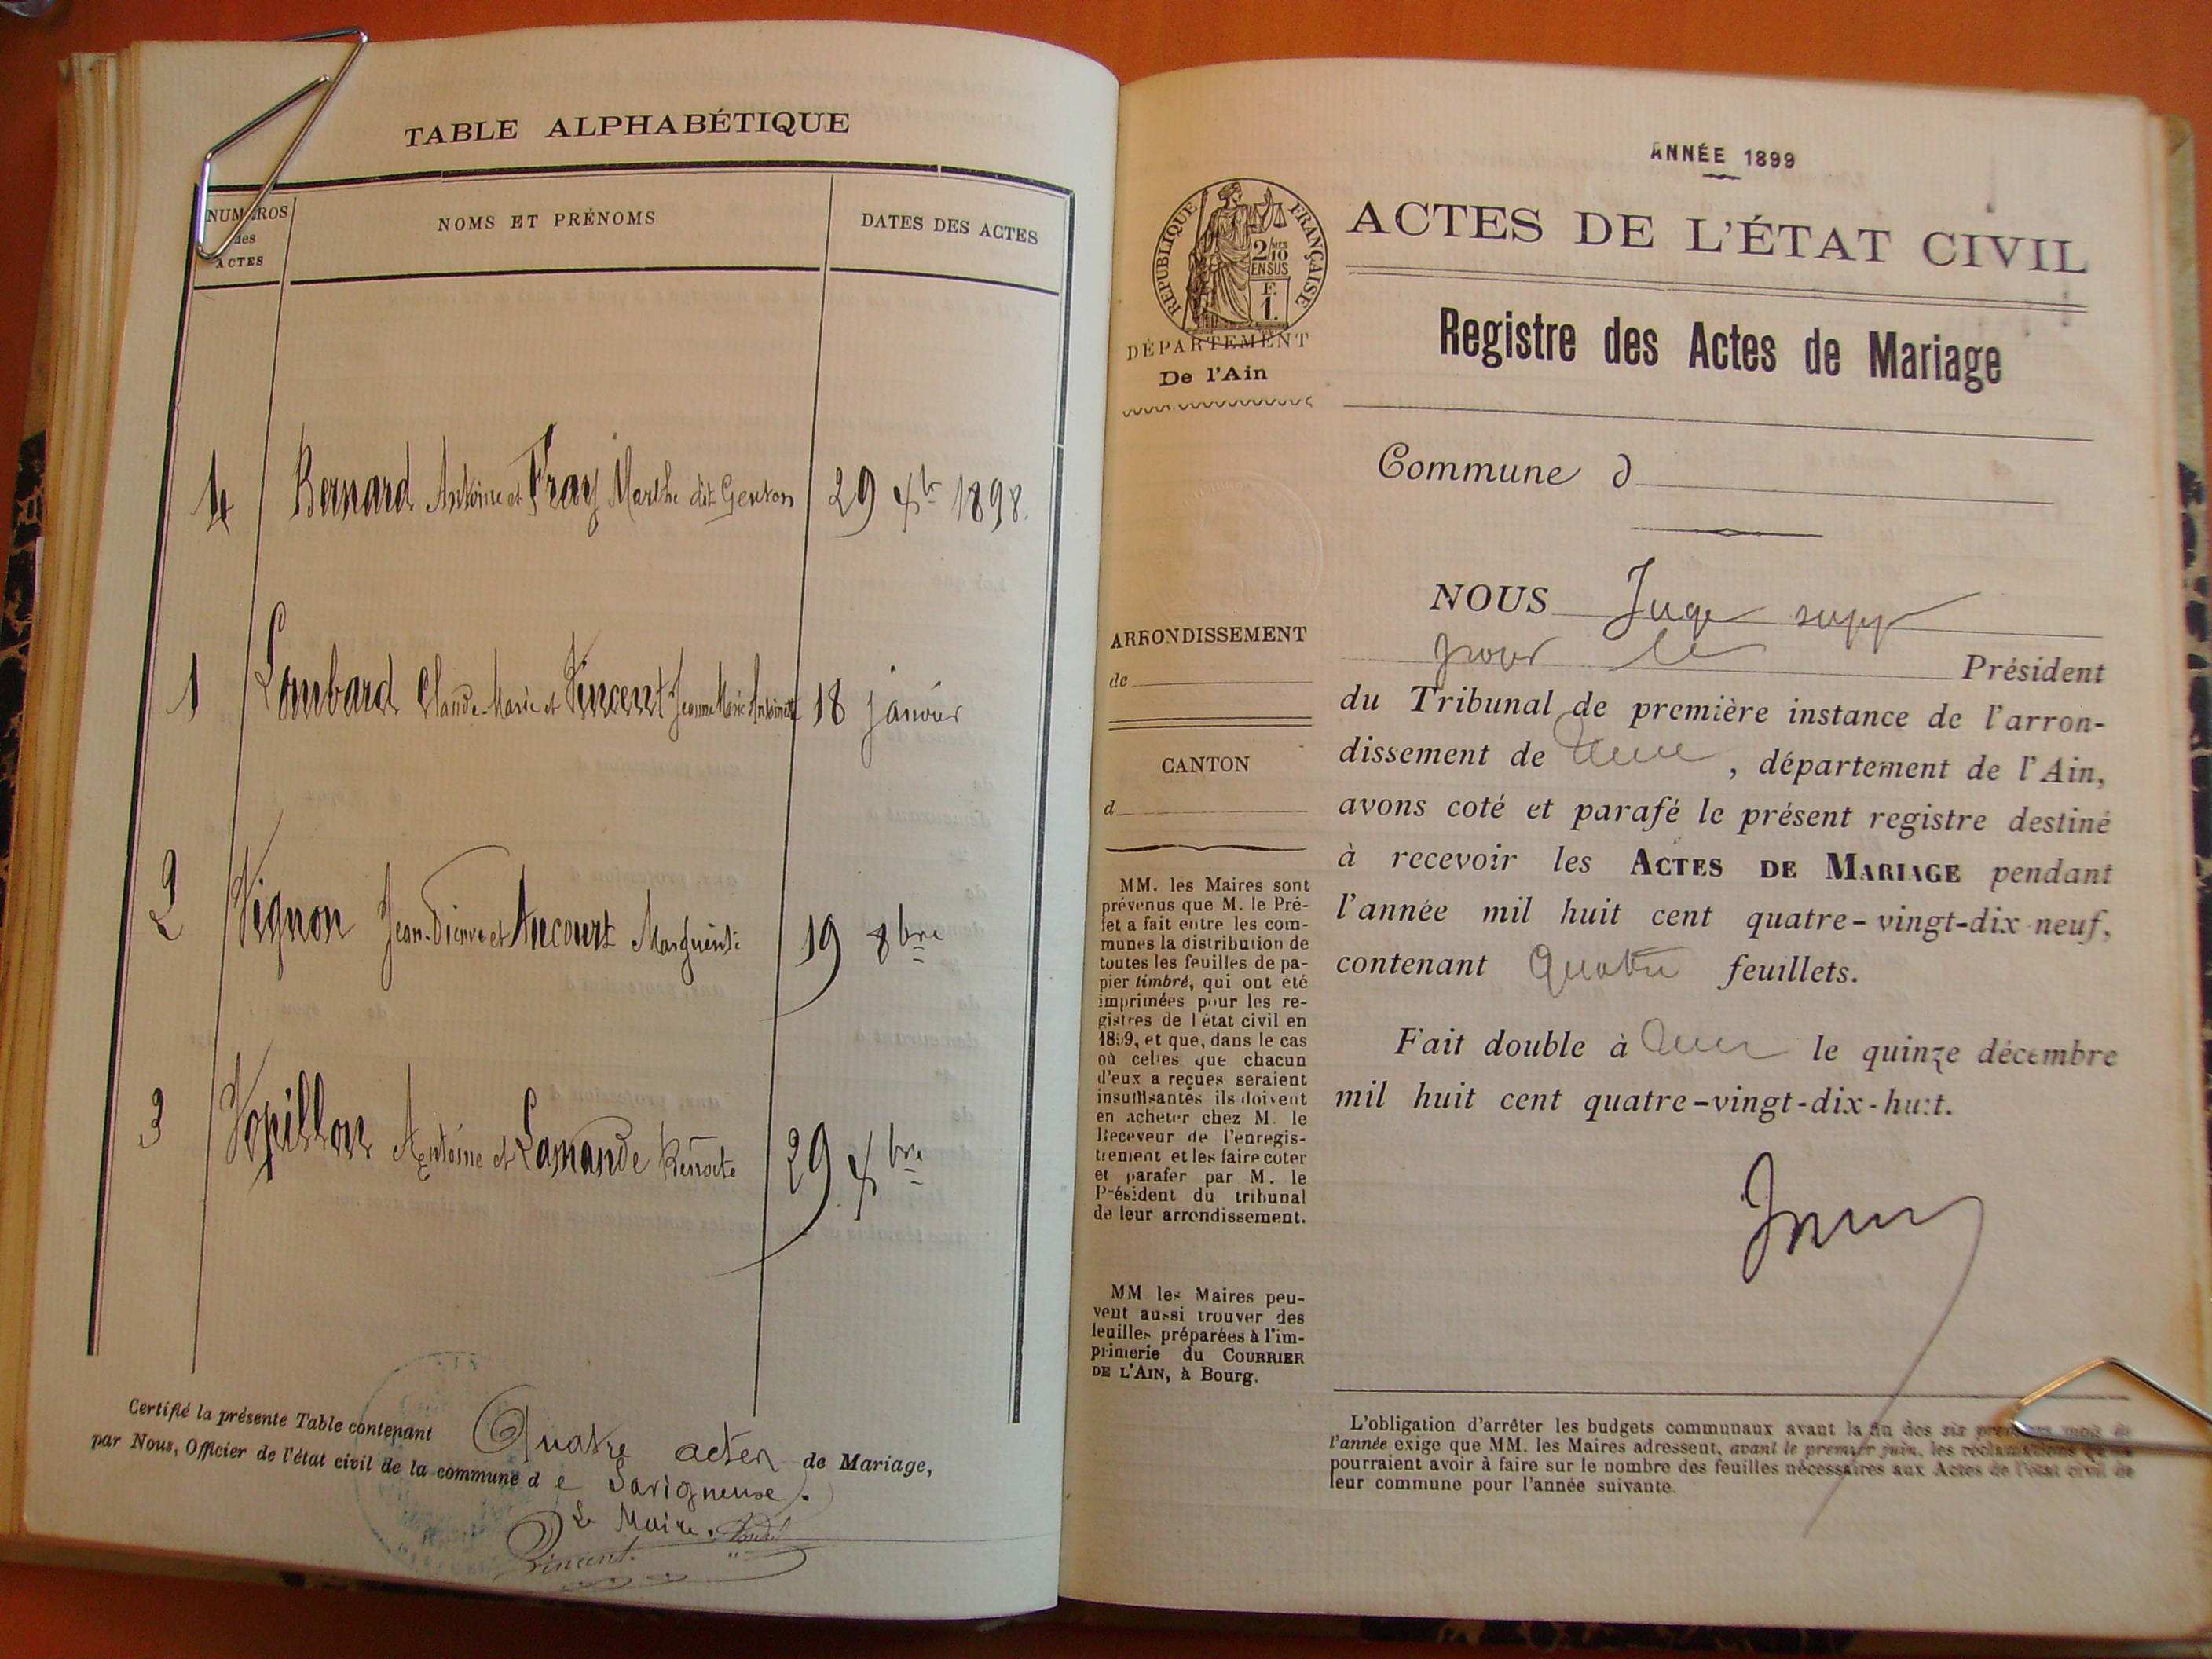 TABLE ALPHABÉTIQUE
NUMÉROS
des
ACTES
NOMS ET PRÉNOMS
DATES DES ACTES
4 Bernard Antoine et Fray Marthe dit Genton 29 Xbr 1898.
1 Lombard Claude-Marie et Vincent Jeanne Marie Antoinette 18 janvier
2 Vignon Jean-Pierre et Ancourt Marguerite 19 8bre
3 Antoine et Lamande Benoite 29 Xbre
Certifié la présente Table contenant Quatre actes de Mariage,
par Nous, Officier de l'état civil de la commune d e Savigneux.
Le Maire.
Vincent.
ANNÉE 1899
RÉPUBLIQUE FRANÇAISE
2/10 MES
EN SUS
F.
1.
DÉPARTEMENT
De l'Ain
ACTES DE L'ÉTAT CIVIL
Registre des Actes de Mariage
Commune d
NOUS Juge supp
pour le Président
du Tribunal de première instance de l'arron-
dissement de , département de l'Ain,
avons coté et parafé le présent registre destiné
à recevoir les ACTES DE MARIAGE pendant
l'année mil huit cent quatre-vingt-dix-neuf,
contenant Quatre feuillets.
Fait double à le quinze décembre
mil huit cent quatre-vingt-dix-huit.
ARRONDISSEMENT
de
CANTON
d
MM. les Maires sont
prévenus que M. le Pré-
fet a fait entre les com-
munes la distribution de
toutes les feuilles de pa-
pier timbré, qui ont été
imprimées pour les re-
gistres de l'état civil en
1899, et que, dans le cas
où celles que chacun
d'eux a reçues seraient
insuffisantes ils doivent
en acheter chez M. le
Receveur de l'enregis-
trement et les faire coter
et parafer par M. le
Président du tribunal
de leur arrondissement.
MM. les Maires peu-
vent aussi trouver des
feuilles préparées à l'im-
primerie du COURRIER
DE L'AIN, à Bourg.
L'obligation d'arrêter les budgets communaux avant la fin des six premiers mois de
l'année exige que MM. les Maires adressent, avant le premier juin, les réclamations qu'ils
pourraient avoir à faire sur le nombre des feuilles nécessaires aux Actes de l'état civil de
leur commune pour l'année suivante.